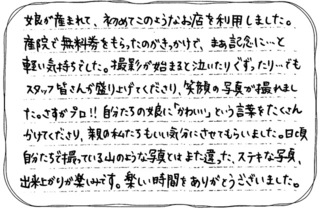 娘が産まれて、初めてこのようなお店を利用しました。
産院で無料券をもらったのがきっかけで、まあ記念に…と
軽い気持ちでした。撮影が始まると泣いたりぐずったり…でも
スタッフ皆さんが盛り上げてくださり、笑顔の写真が撮れまし
た。さすがプロ!!自分たちの娘に「かわいい」という言葉をたくさん
かけてくださり、親の私たちもいい気分にさせてもらいました。日頃
自分たちで撮っている山のような写真とはまた違った、ステキな写真、
出来上がりが楽しみです。楽しい時間をありがとうございました。